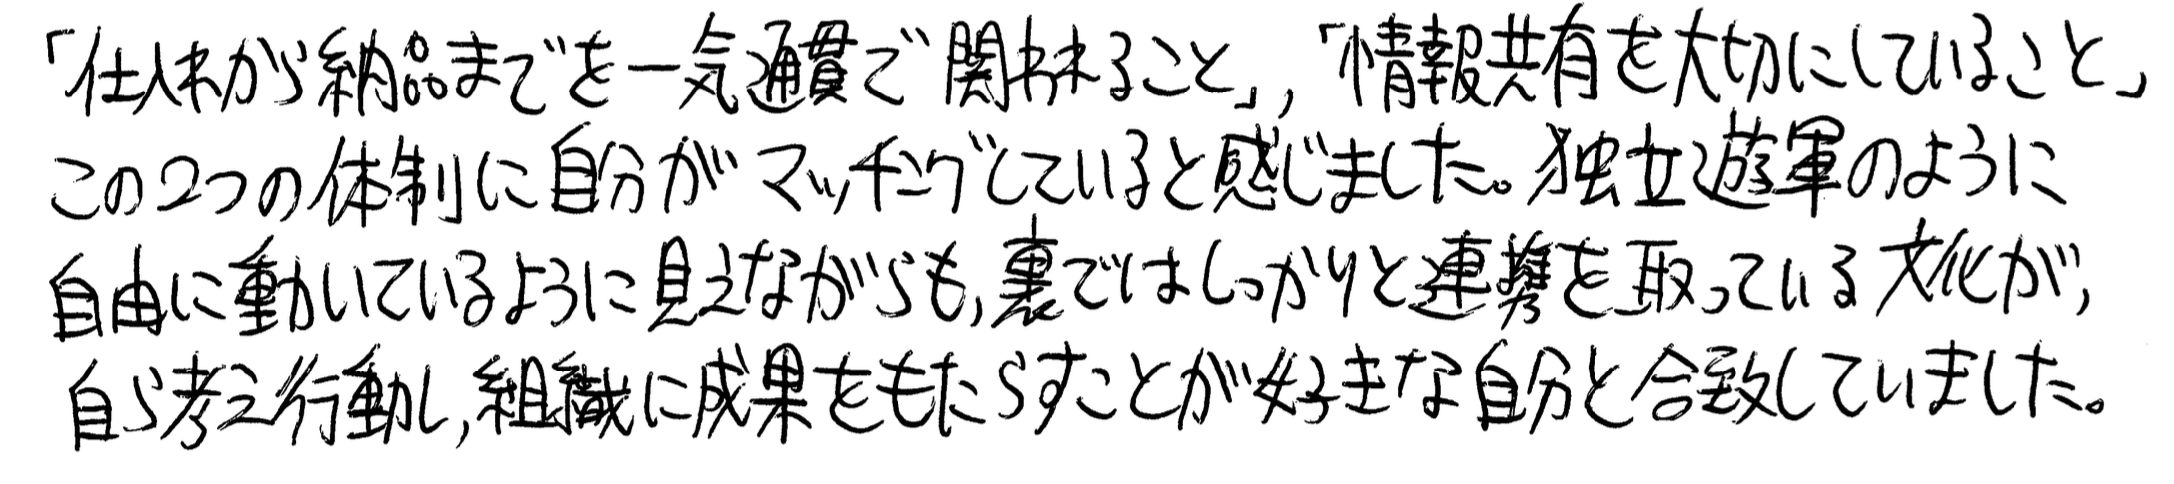 「仕入れから納品までを一気通貫で関われること」,「情報共有を大切にしていること」
この2つの体制に自分がマッチングしていると感じました。独立遊軍のように
自由に動いているように見えながらも,裏ではしっかりと連携を取っている文化が,
自ら考え行動し,組織に成果をもたらすことが好きな自分と合致していました。